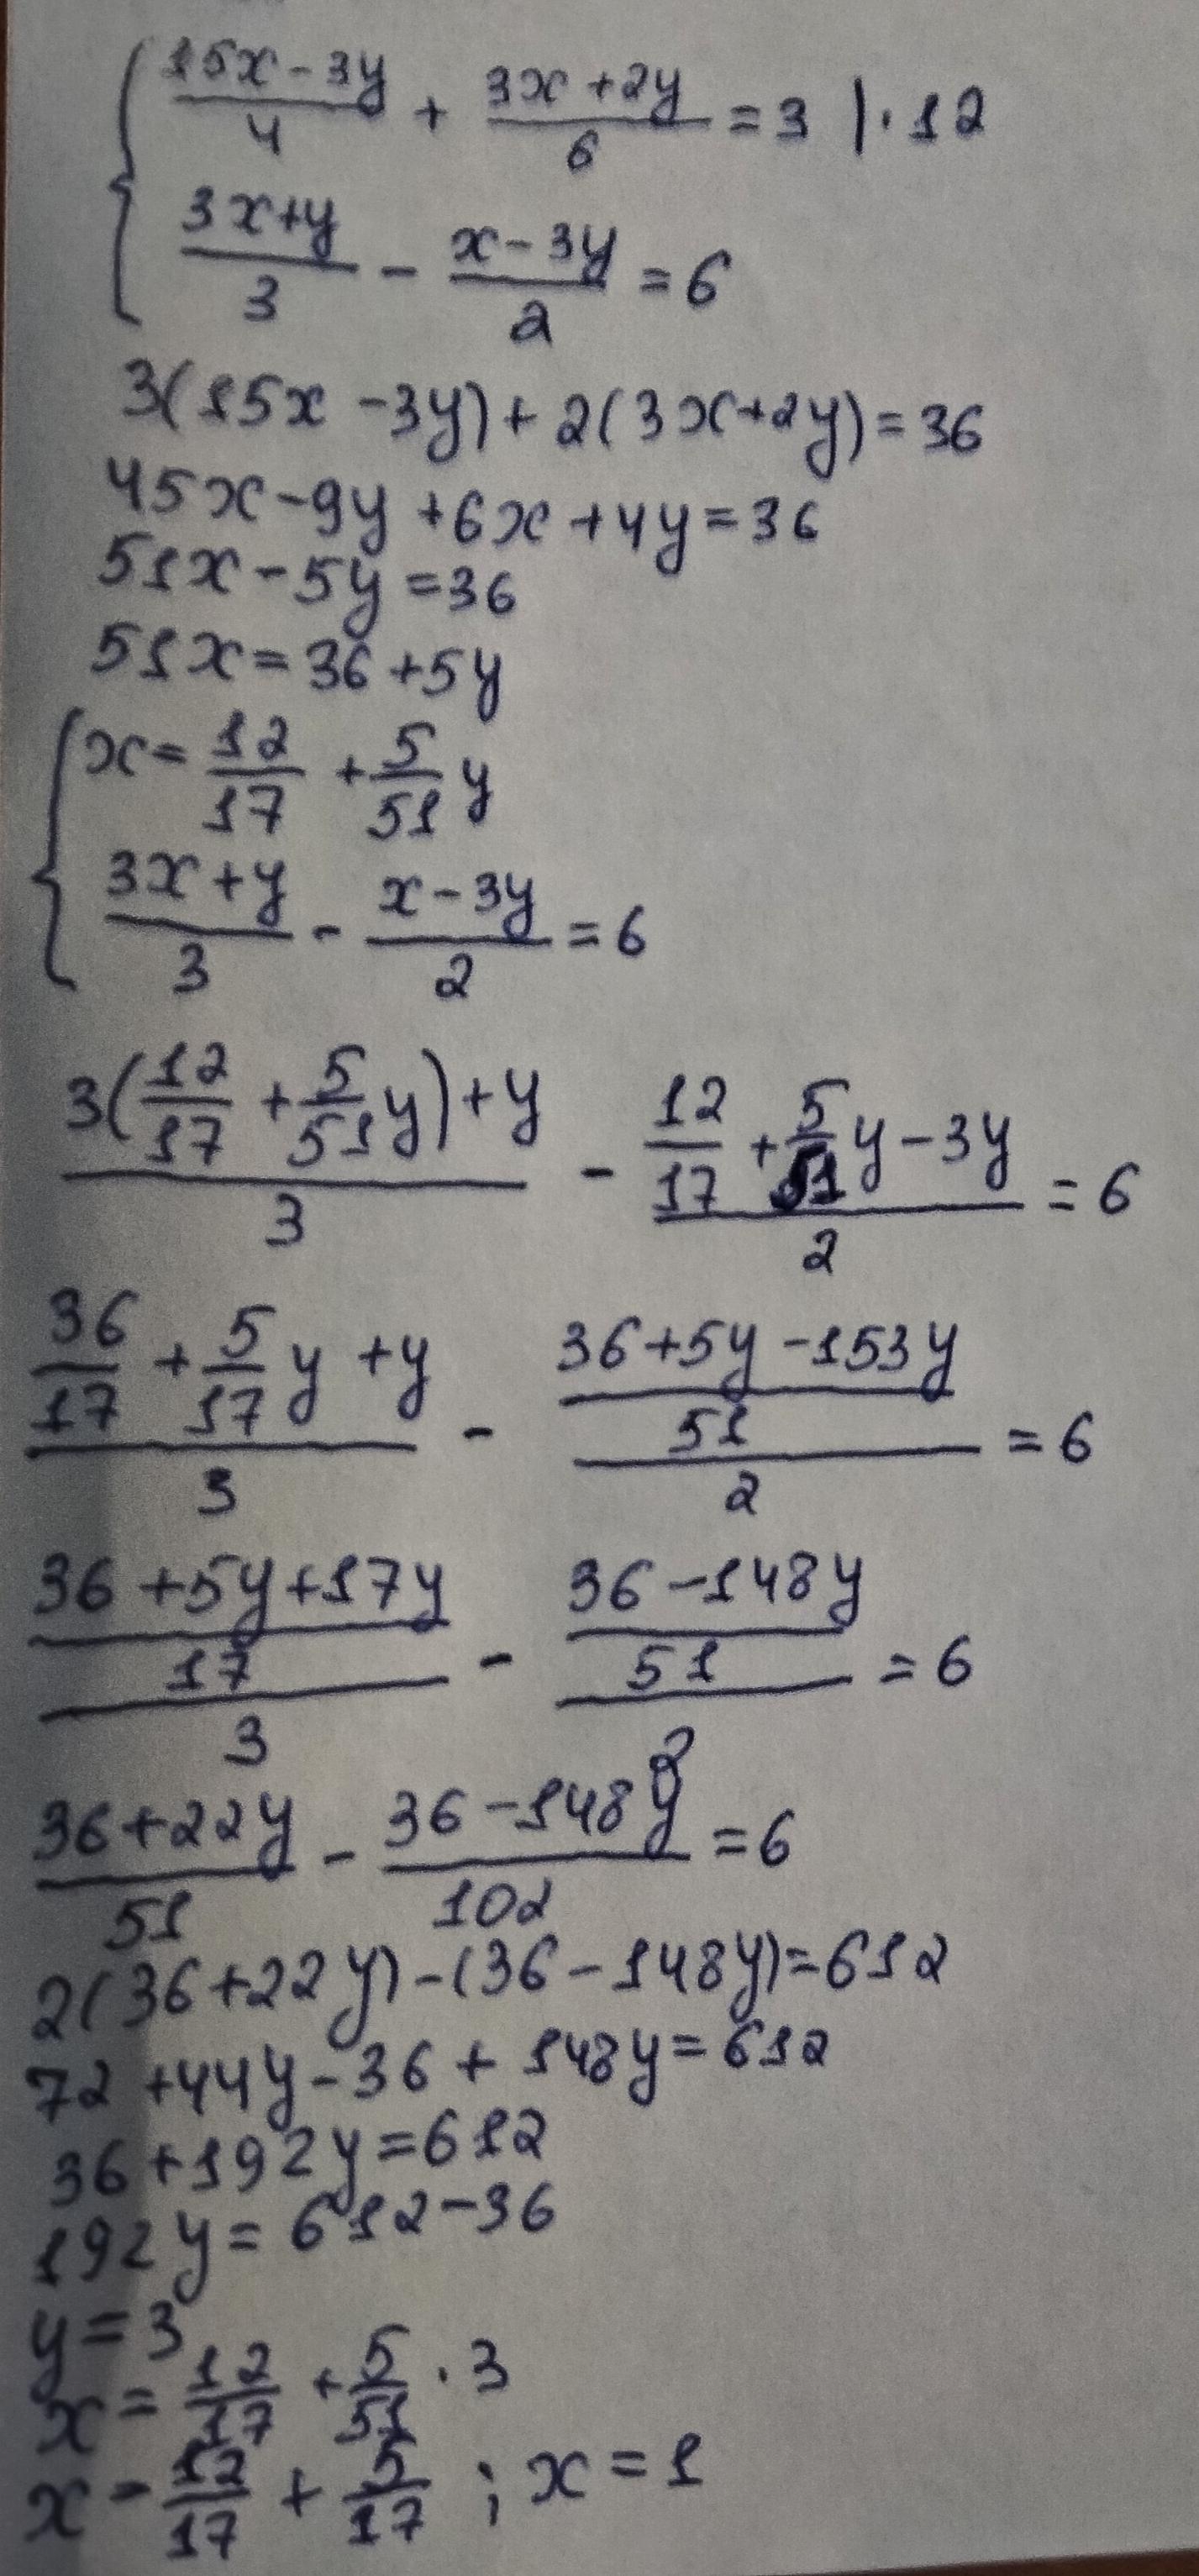 { (15x-3y)/4 + (3x+2y)/6 = 3 | · 12
(3x+y)/3 - (x-3y)/2 = 6
3(15x-3y)+2(3x+2y)=36
45x-9y+6x+4y=36
51x-5y=36
51x=36+5y
{ x= 12/17 + 5/51 y
(3x+y)/3 - (x-3y)/2 = 6
(3(12/17 + 5/51 y)+y)/3 - (12/17 + 5/51 y-3y)/2 = 6
(36/17 + 5/17 y+y)/3 - ((36+5y-153y)/51)/2 = 6
((36+5y+17y)/17)/3 - ((36-148y)/51)/2 = 6
(36+22y)/51 - (36-148y)/102 = 6
2(36+22y)-(36-148y)=612
72+44y-36+148y=612
36+192y=612
192y=612-36
y=3
x= 12/17 + 5/51 · 3
x= 12/17 + 5/17 ; x=1